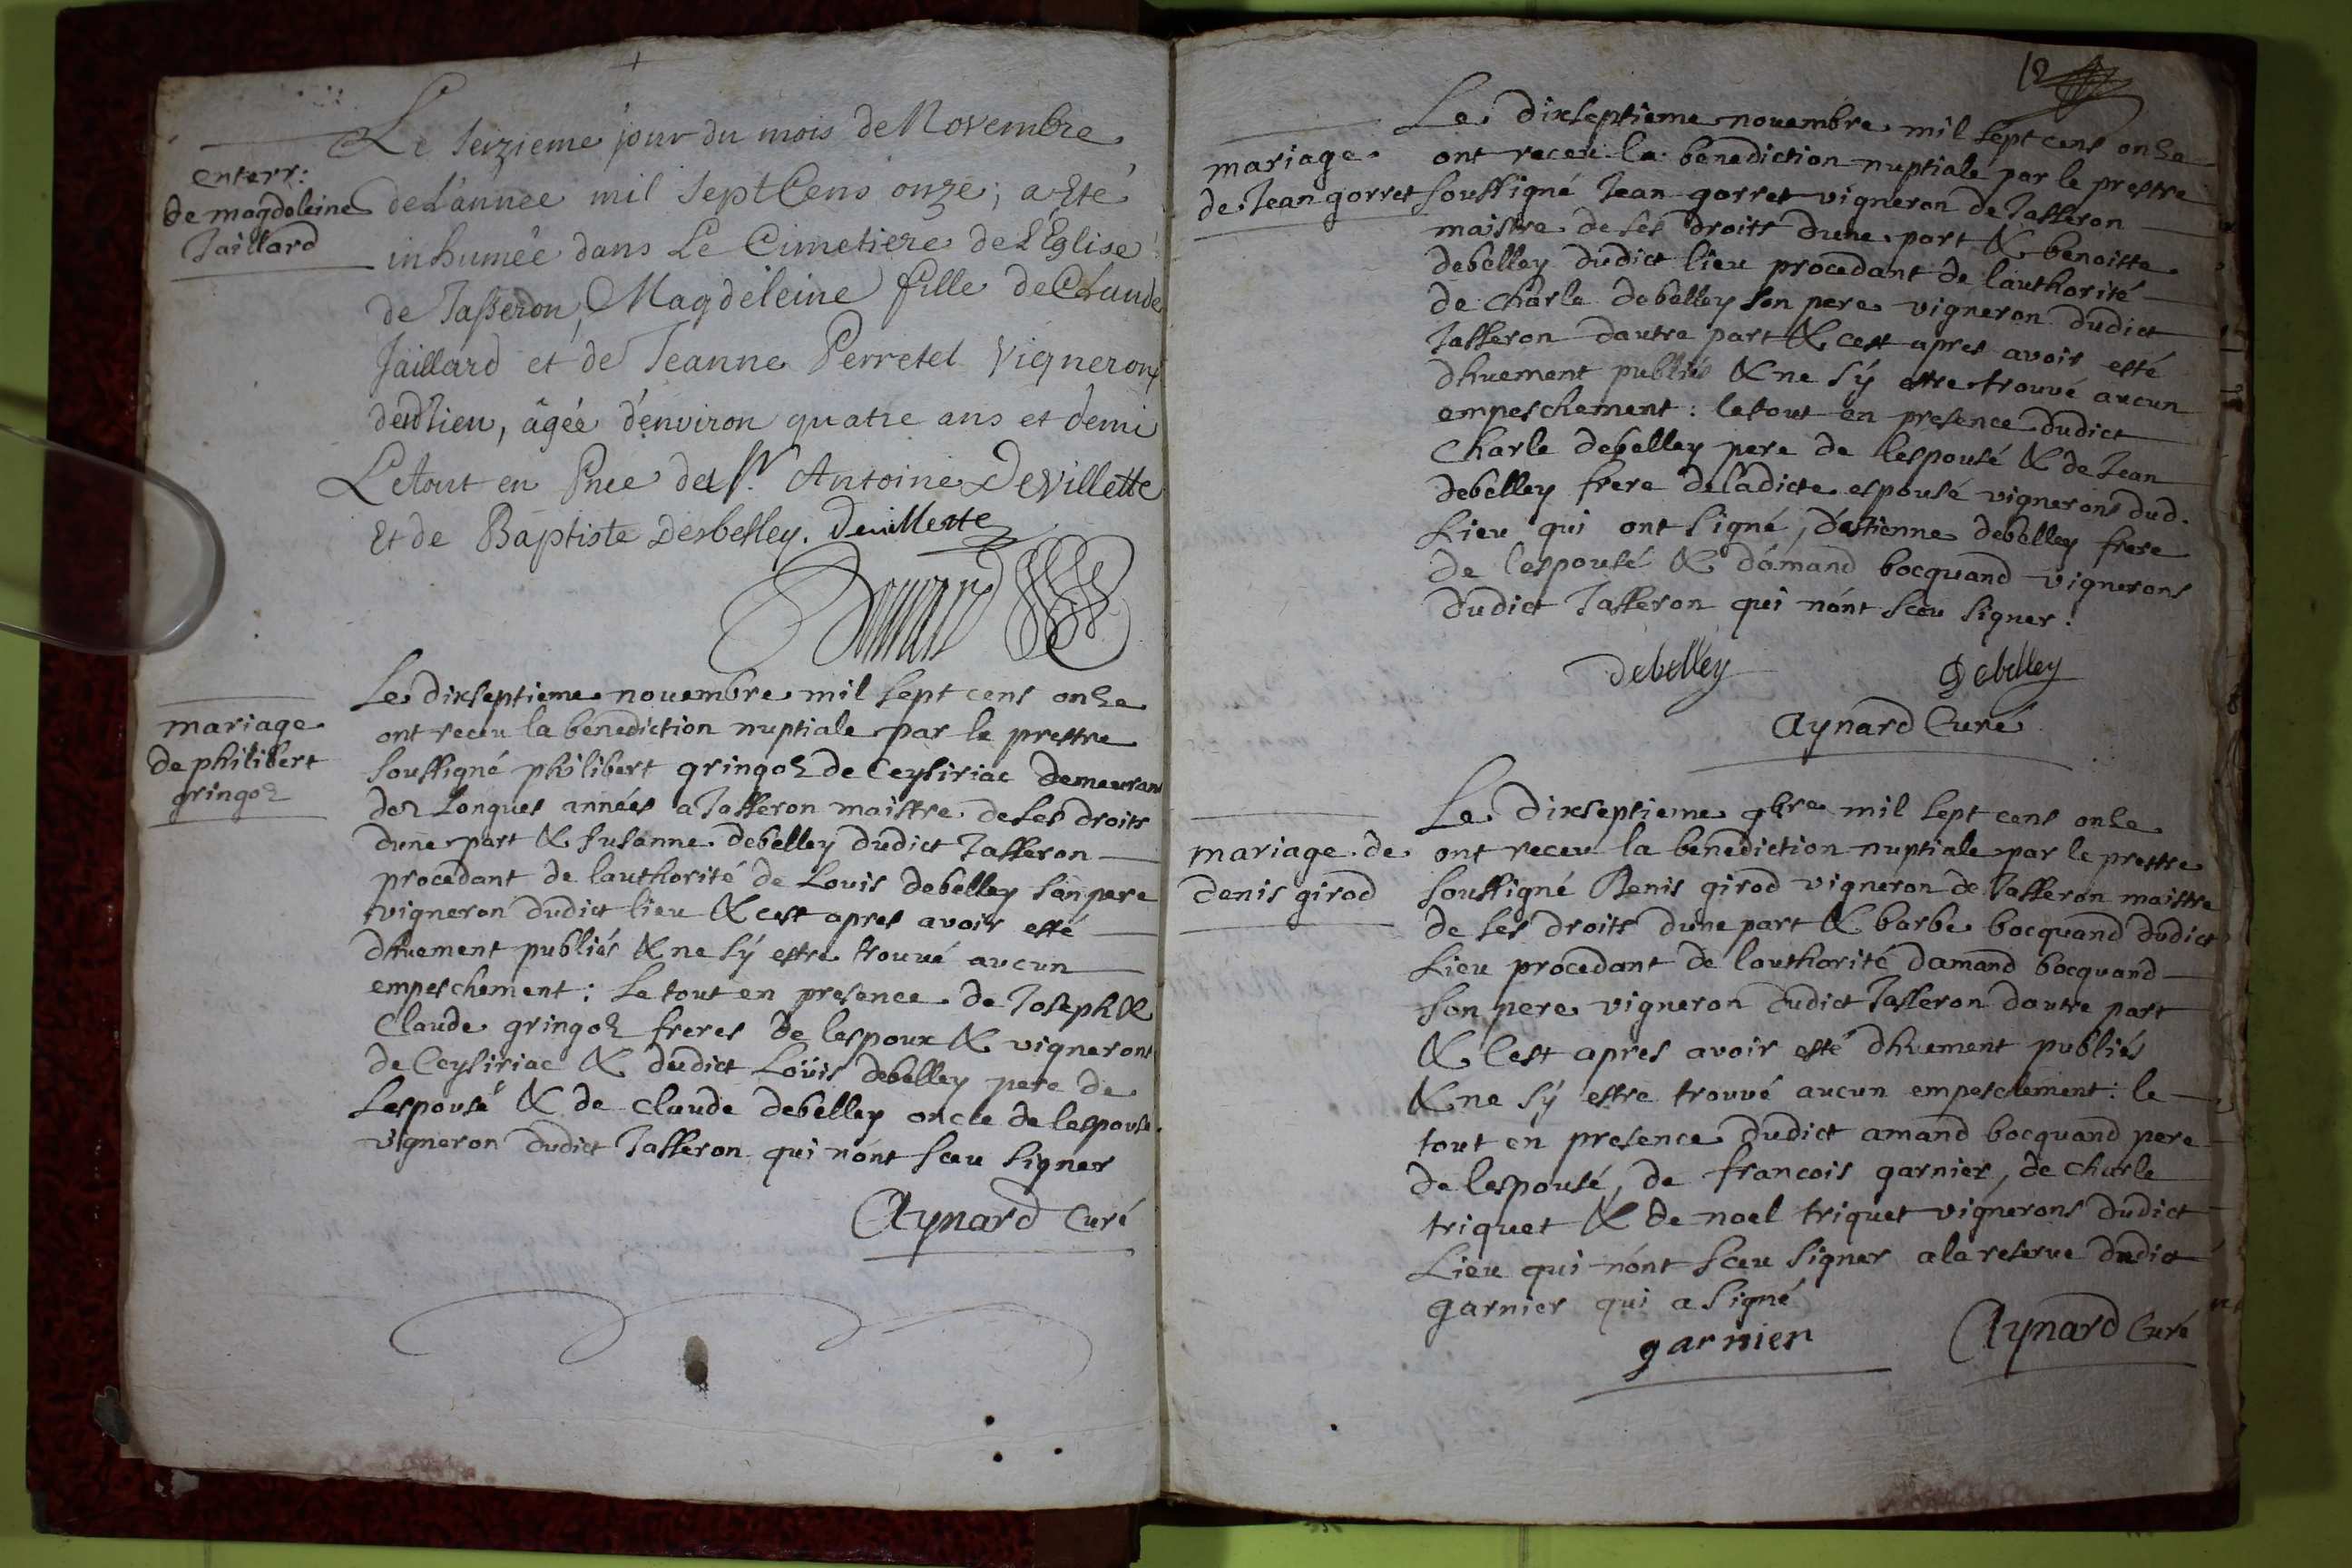 enterr:
de magdeleine
Jaillard
Le seizieme jour du mois de Novembre
de l'année mil sept Cens onze; a Eté
inhumée dans Le Cimetiere de l'Église
de Jasseron, Magdeleine fille de Claude
Jaillard et de Jeanne Perretel Vignerons
dudt lieu, âgée d'environ quatre ans et demi
Le tout en Pnce du Sr. Antoine Devillette
Et de Baptiste Desbelley. Devillette
mariage
de philibert
gringoz
Le dixseptieme nouembre mil sept cens onze
ont receu la benediction nuptiale par le prestre
soussigné philibert gringoz de Ceysiriac demeurant
dez longues années a Jasseron maistre de ses droits
dune part & susanne debelley dudict Jasseron
procedant de lauthorité de Louis debelley son pere
vigneron dudict lieu & cest apres avoir esté
dhuement publiés & ne sÿ estre trouué aucun
empeschement: le tout en presence de Joseph &
Claude gringoz freres de lespoux & vignerons
de Ceysiriac & dudict Loüis debelley pere de
Lespousé & de claude debelley oncle de lespouse
vigneron dudict Jasseron qui nónt sceu signer
Aynard Curé
12
mariage
de Jean gorret
Le dixseptieme nouembre mil sept cens onze
ont receu la benediction nuptiale par le prestre
soussigné Jean gorret vigneron de Jasseron
maistre de ses droits dune part & benoitte
debelley dudict lieu procedant de lauthorité
de charle debelley son pere vigneron dudict
Jasseron dautre part & cest apres avoir esté
dhuement publiés & ne sÿ estre trouvé aucun
empeschement: le tout en presence dudict
Charle debelley pere de lespousé & de Jean
debelley frere deladicte espousé vignerons dud.
Lieu qui ont signé, déstienne debelley frere
de lespousé & dámand bocquand vignerons
dudict Jasseron qui nónt sceu signer.
Debelley Debelley
Aynard Curé
mariage de
denis girod
Le dixseptieme 9bre mil sept cens onze
ont receu la benediction nuptiale par le prestre
soussigné Denis girod vigneron de Jasseron maistre
de ses droits dune part & barbe bocquand dudict
Lieu procedant de lauthorité damand bocquand
son pere vigneron dudict Jasseron dautre part
& cest apres avoir esté dhuement publiés
& ne sÿ estre trouvé aucun empeschement: le
tout en presence dudict amand bocquand pere
de lespousé, de francois garnier, de charle
triquet & de noel triquet vignerons dudict
Lieu qui nónt sceu signer ala reserue dudict
garnier qui a signé
garnier Aynard Curé